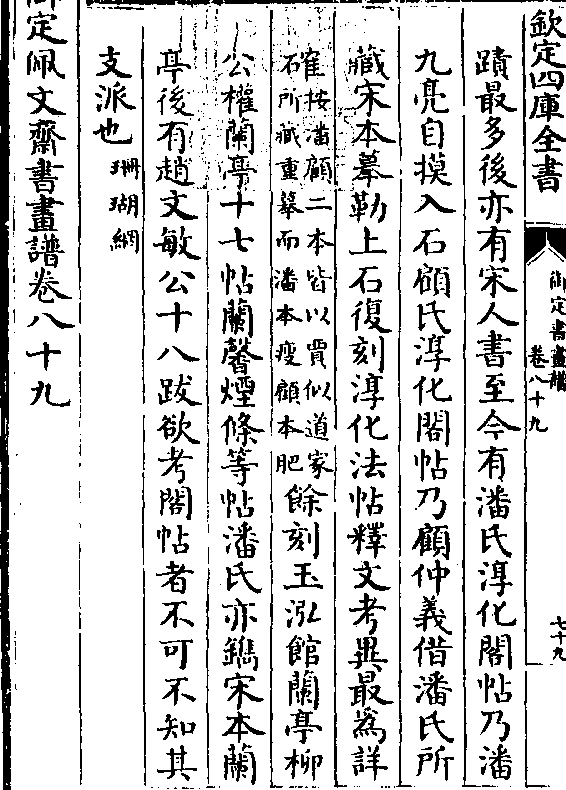 欽定四庫全書
御定書畫譜
卷八十九
七十九
蹟最多後亦有宋人書至今有潘氏淳化閣帖乃潘
九亮自摸入石顧氏淳化閣帖乃顧仲義借潘氏所
藏宋本摹勒上石復刻淳化法帖釋文考異最爲詳
隺按潘顧二本皆以賈似道家
石所藏重摹而潘本瘦顧本肥餘刻玉泓館蘭亭柳
公權蘭亭十七帖蘭馨煙條等帖潘氏亦鐫宋本蘭
亭後有趙文敏公十八跋欲考閣帖者不可不知其
支派也珊瑚網
御定佩文齋書畫譜卷八十九